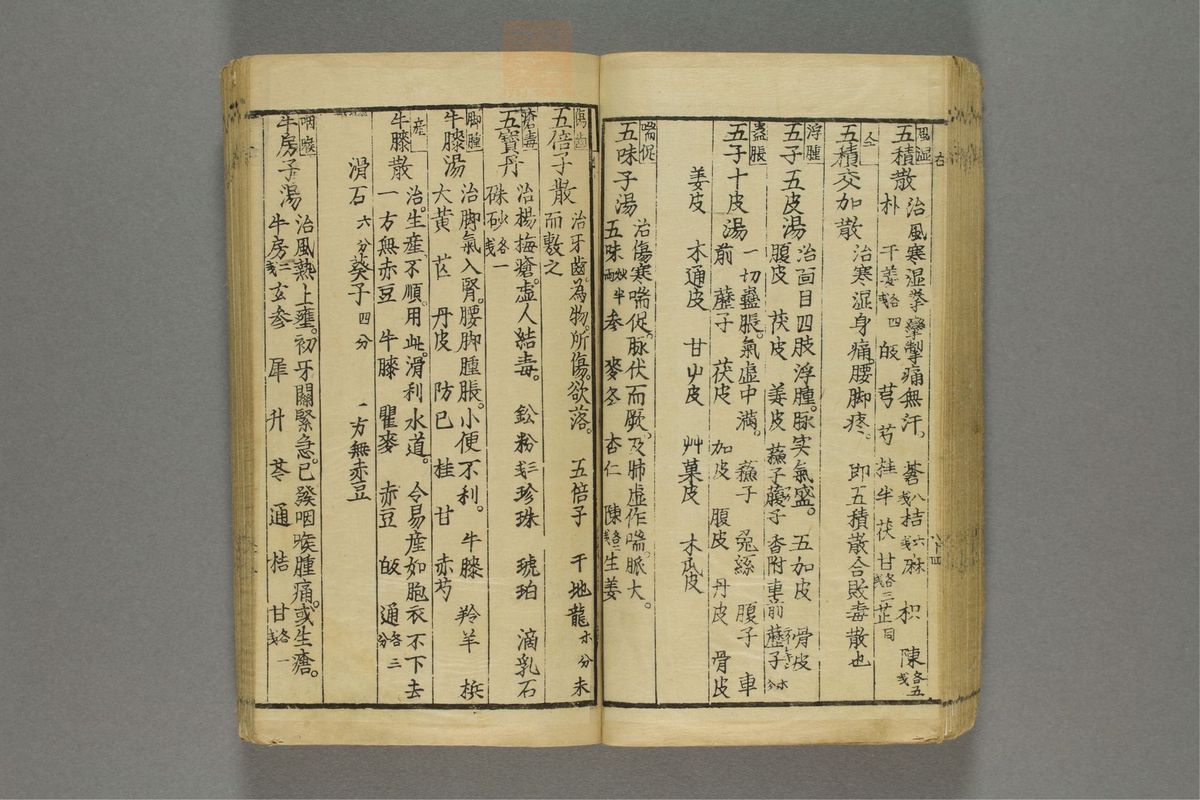 風湿
五積散 治風寒湿挛攣掣痛無汗。 蒼八戔 桔六戔 麻 枳 陳各五戔
朴 干姜各四戔 皈 芎 芍 桂 半 茯 甘各三戔 芷同
仝
五積交加散 治寒湿身痛。腰脚疼。 即五積散合敗毒散也
浮腫
五子五皮湯 治面目四肢浮腫。脉実氣盛。 五加皮 骨皮
腹皮 茯皮 姜皮 蘇子 子 香附 車前
蠱脹
五子十皮湯 一切蠱脹。氣虚中滿。 蘇子 兔絲 腹子 車
前 子 茯皮 加皮 腹皮 丹皮 骨皮
姜皮 木通皮 甘皮 艸菓皮 木瓜皮
喘促
五味子湯 治傷寒喘促。脉伏而厥。及肺虚作喘。脈大。
五味 半 参 麥冬 杏仁 陳各二戔 生姜
傷齒
五倍子散 治牙齒。為物所傷。欲落。 五倍子 干地竜 分 末
而敷之
瘡毒
五寶丹 治楊梅瘡。虚人結毒。 鉛粉三戔 珍珠 琥珀 滴乳石
硃砂各一戔
脚腫
牛膝湯 治脚氣入腎。腰脚腫脹。小便不利。 牛膝 羚羊 梹
大黄 芑 丹皮 防已 桂 甘 赤芍
産
牛膝散 治。生産不順。用此。滑利水道。 令易産如胞衣不下去
一方無赤豆 牛膝 瞿麥 赤豆 皈 通各三分
滑石六分 葵子四分 一方無赤豆
咽喉
牛房子湯 治風熱上壅。初牙關緊急。已發咽喉腫痛。或生瘡。
牛房三戔 玄参 犀 升 芩 通 桔 甘各一戔